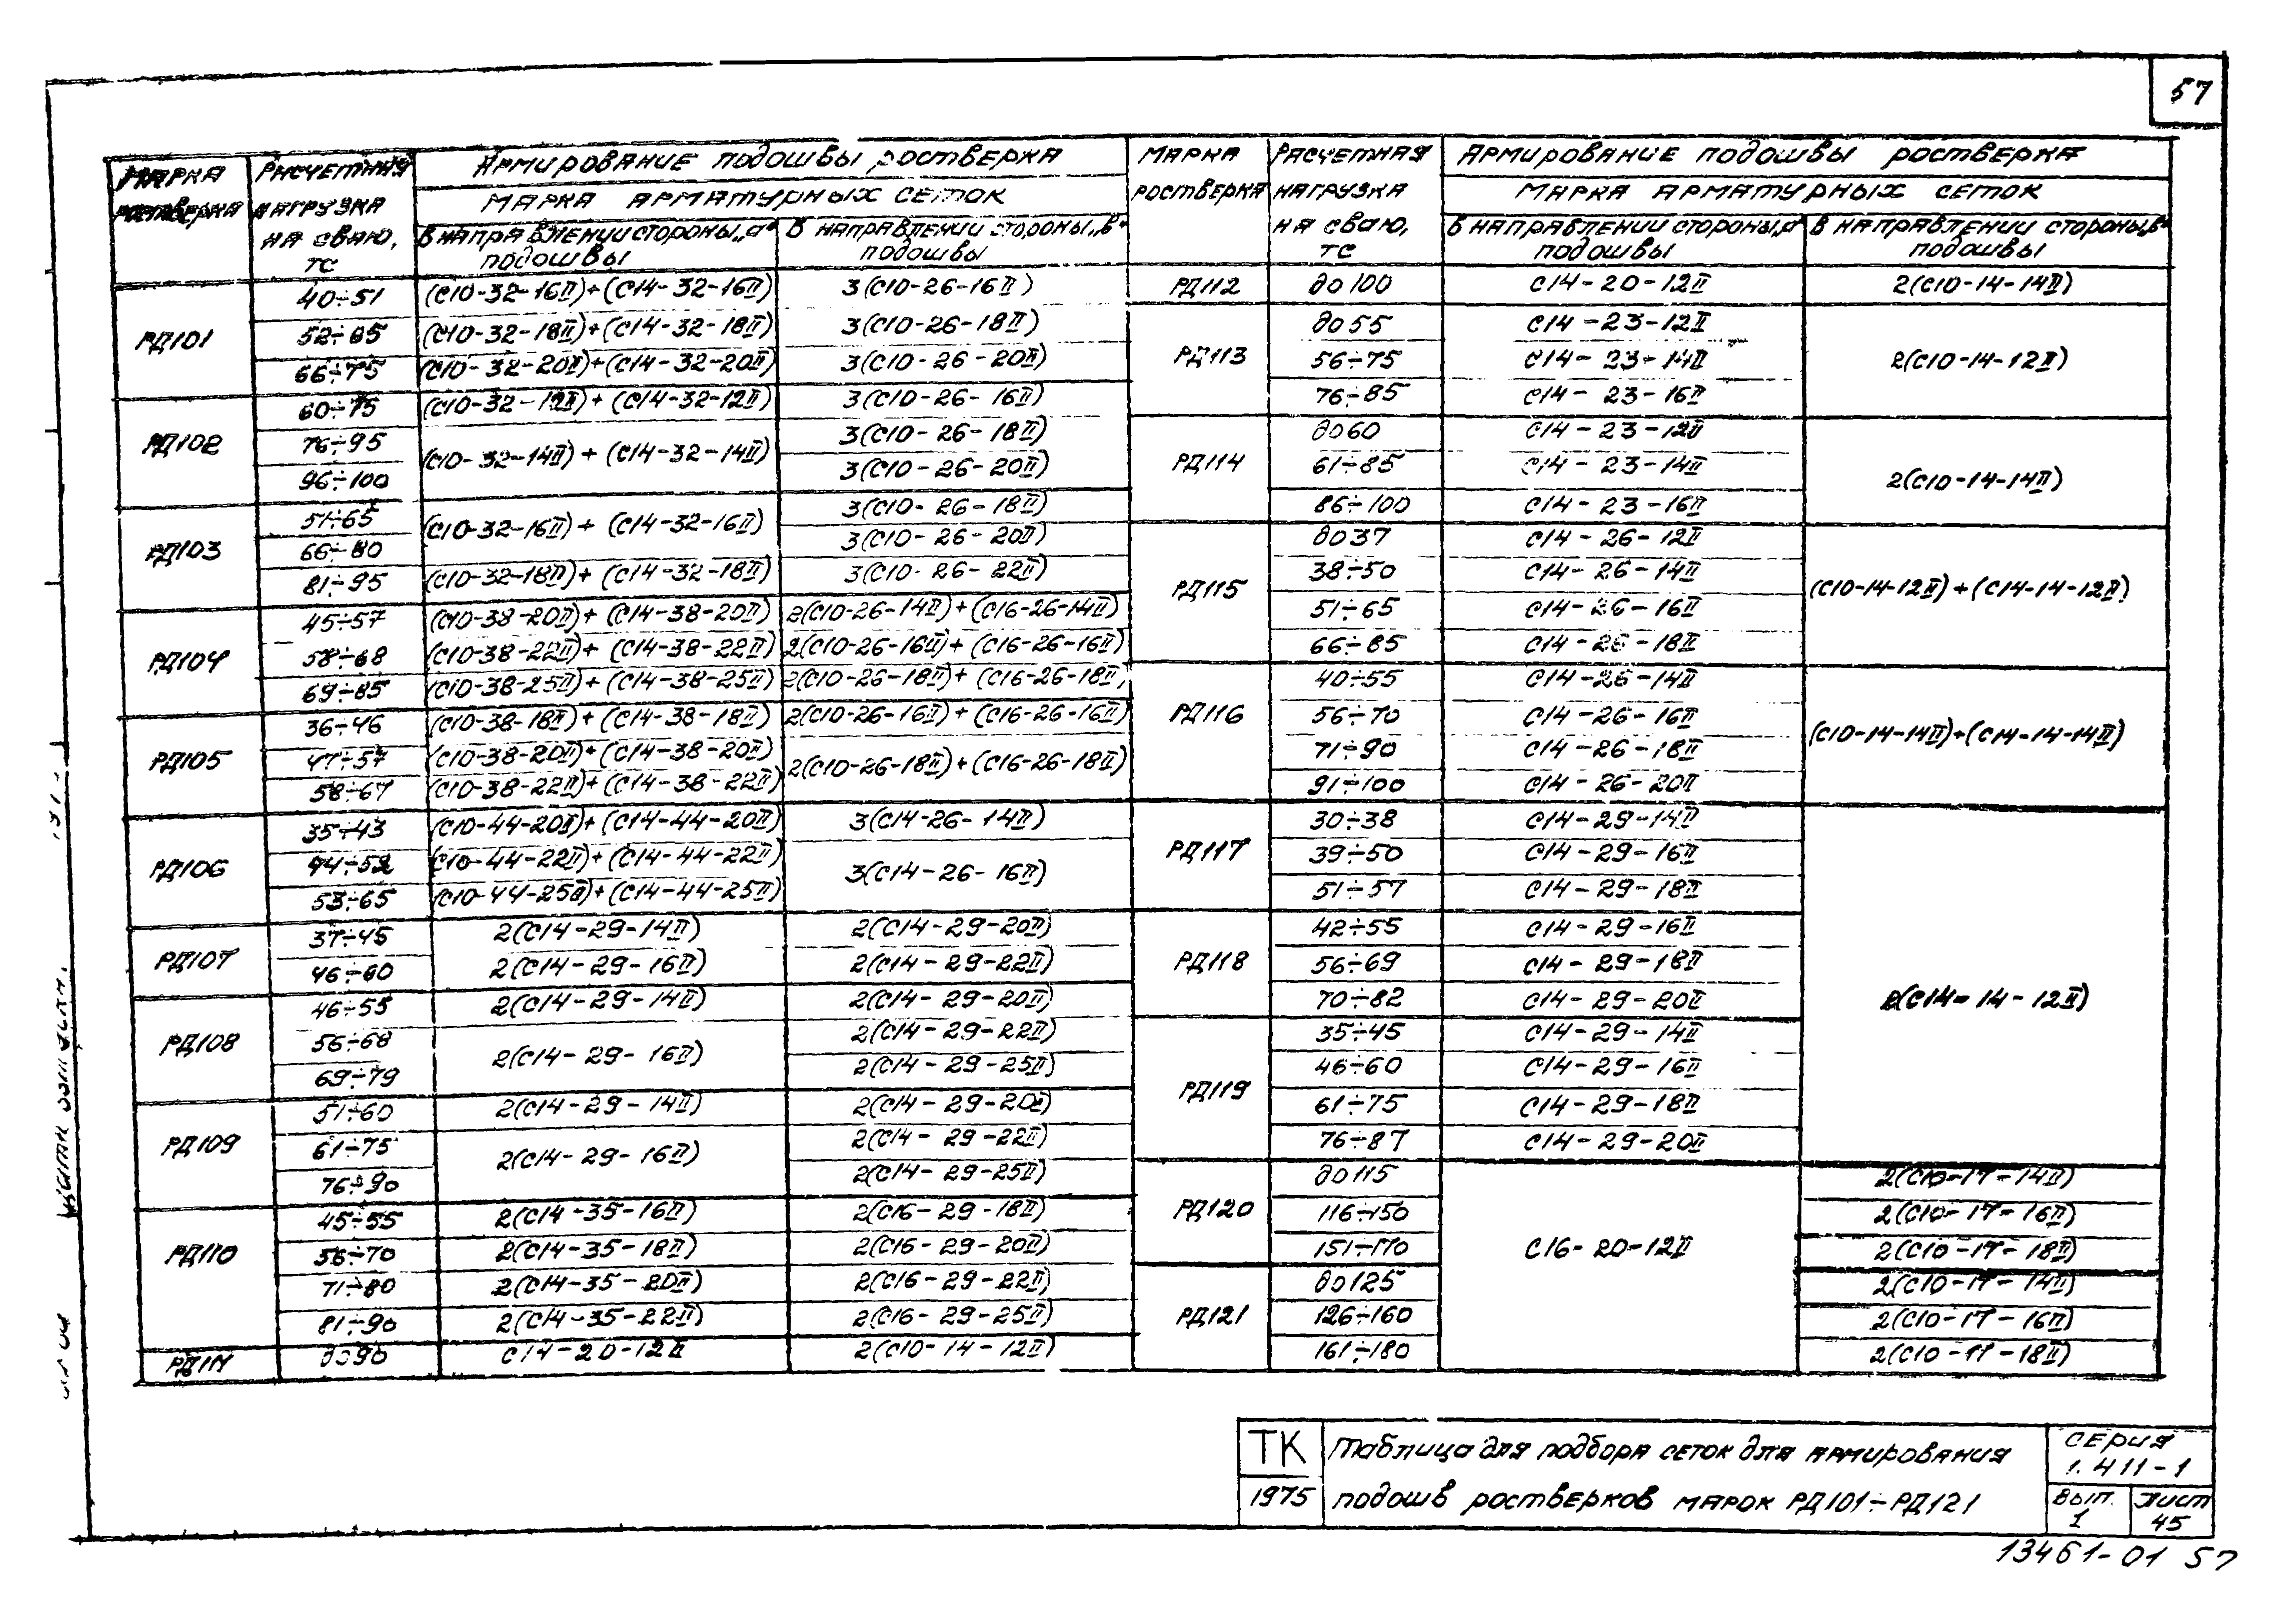 57
Марка ростверка
Расчетная нагрузка на сваю, тс
Армирование подошвы ростверка
Марка арматурных сеток
в направлении стороны „а“ подошвы
в направлении стороны „в“ подошвы
РД101
40÷51 (С10-32-16II)+(С14-32-16II) 3(С10-26-16II)
52÷65 (С10-32-18II)+(С14-32-18II) 3(С10-26-18II)
66÷75 (С10-32-20II)+(С14-32-20II) 3(С10-26-20II)
РД102
60÷75 (С10-32-12II)+(С14-32-12II) 3(С10-26-16II)
76÷95 (С10-32-14II)+(С14-32-14II) 3(С10-26-18II)
96÷100 3(С10-26-20II)
РД103
51÷65 (С10-32-16II)+(С14-32-16II) 3(С10-26-18II)
66÷80 3(С10-26-20II)
81÷95 (С10-32-18II)+(С14-32-18II) 3(С10-26-22II)
РД104
45÷57 (С10-38-20II)+(С14-38-20II) 2(С10-26-14II)+(С16-26-14II)
58÷68 (С10-38-22II)+(С14-38-22II) 2(С10-26-16II)+(С16-26-16II)
69÷85 (С10-38-25II)+(С14-38-25II) 2(С10-26-18II)+(С16-26-18II)
РД105
36÷46 (С10-38-18II)+(С14-38-18II) 2(С10-26-16II)+(С16-26-16II)
47÷57 (С10-38-20II)+(С14-38-20II) 2(С10-26-18II)+(С16-26-18II)
58÷67 (С10-38-22II)+(С14-38-22II)
РД106
35÷43 (С10-44-20II)+(С14-44-20II) 3(С14-26-14II)
44÷52 (С10-44-22II)+(С14-44-22II) 3(С14-26-16II)
53÷65 (С10-44-25II)+(С14-44-25II)
РД107
37÷45 2(С14-29-14II) 2(С14-29-20II)
46÷60 2(С14-29-16II) 2(С14-29-22II)
РД108
46÷55 2(С14-29-14II) 2(С14-29-20II)
56÷68 2(С14-29-16II) 2(С14-29-22II)
69÷79 2(С14-29-25II)
РД109
51÷60 2(С14-29-14II) 2(С14-29-20II)
61÷75 2(С14-29-16II) 2(С14-29-22II)
76÷90 2(С14-29-25II)
РД110
45÷55 2(С14-35-16II) 2(С16-29-18II)
56÷70 2(С14-35-18II) 2(С16-29-20II)
71÷80 2(С14-35-20II) 2(С16-29-22II)
81÷90 2(С14-35-22II) 2(С16-29-25II)
РД111
до90 С14-20-12II 2(С10-14-12II)
Марка ростверка
Расчетная нагрузка на сваю, тс
Армирование подошвы ростверка
Марка арматурных сеток
в направлении стороны „а“ подошвы
в направлении стороны „в“ подошвы
РД112
до100 С14-20-12II 2(С10-14-14II)
РД113
до55 С14-23-12II
56÷75 С14-23-14II 2(С10-14-12II)
76÷85 С14-23-16II
РД114
до60 С14-23-12II
61÷85 С14-23-14II 2(С10-14-14II)
86÷100 С14-23-16II
РД115
до37 С14-26-12II
38÷50 С14-26-14II (С10-14-12II)+(С14-14-12II)
51÷65 С14-26-16II
66÷85 С14-26-18II
РД116
40÷55 С14-26-14II
56÷70 С14-26-16II (С10-14-14II)+(С14-14-14II)
71÷90 С14-26-18II
91÷100 С14-26-20II
РД117
30÷38 С14-29-14II
39÷50 С14-29-16II
51÷57 С14-29-18II
РД118
42÷55 С14-29-16II
56÷69 С14-29-18II
70÷82 С14-29-20II 2(С14-14-12II)
РД119
35÷45 С14-29-14II
46÷60 С14-29-16II
61÷75 С14-29-18II
76÷87 С14-29-20II
РД120
до115 2(С10-17-14II)
116÷150 2(С10-17-16II)
151÷170 С16-20-12II 2(С10-17-18II)
РД121
до125 2(С10-17-14II)
126÷160 2(С10-17-16II)
161÷180 2(С10-17-18II)
ТК
1975
Таблица для подбора сеток для армирования
подошв ростверков марок РД101÷РД121
Серия
1.411-1
Вып. 1
Лист 45
13461-01 57